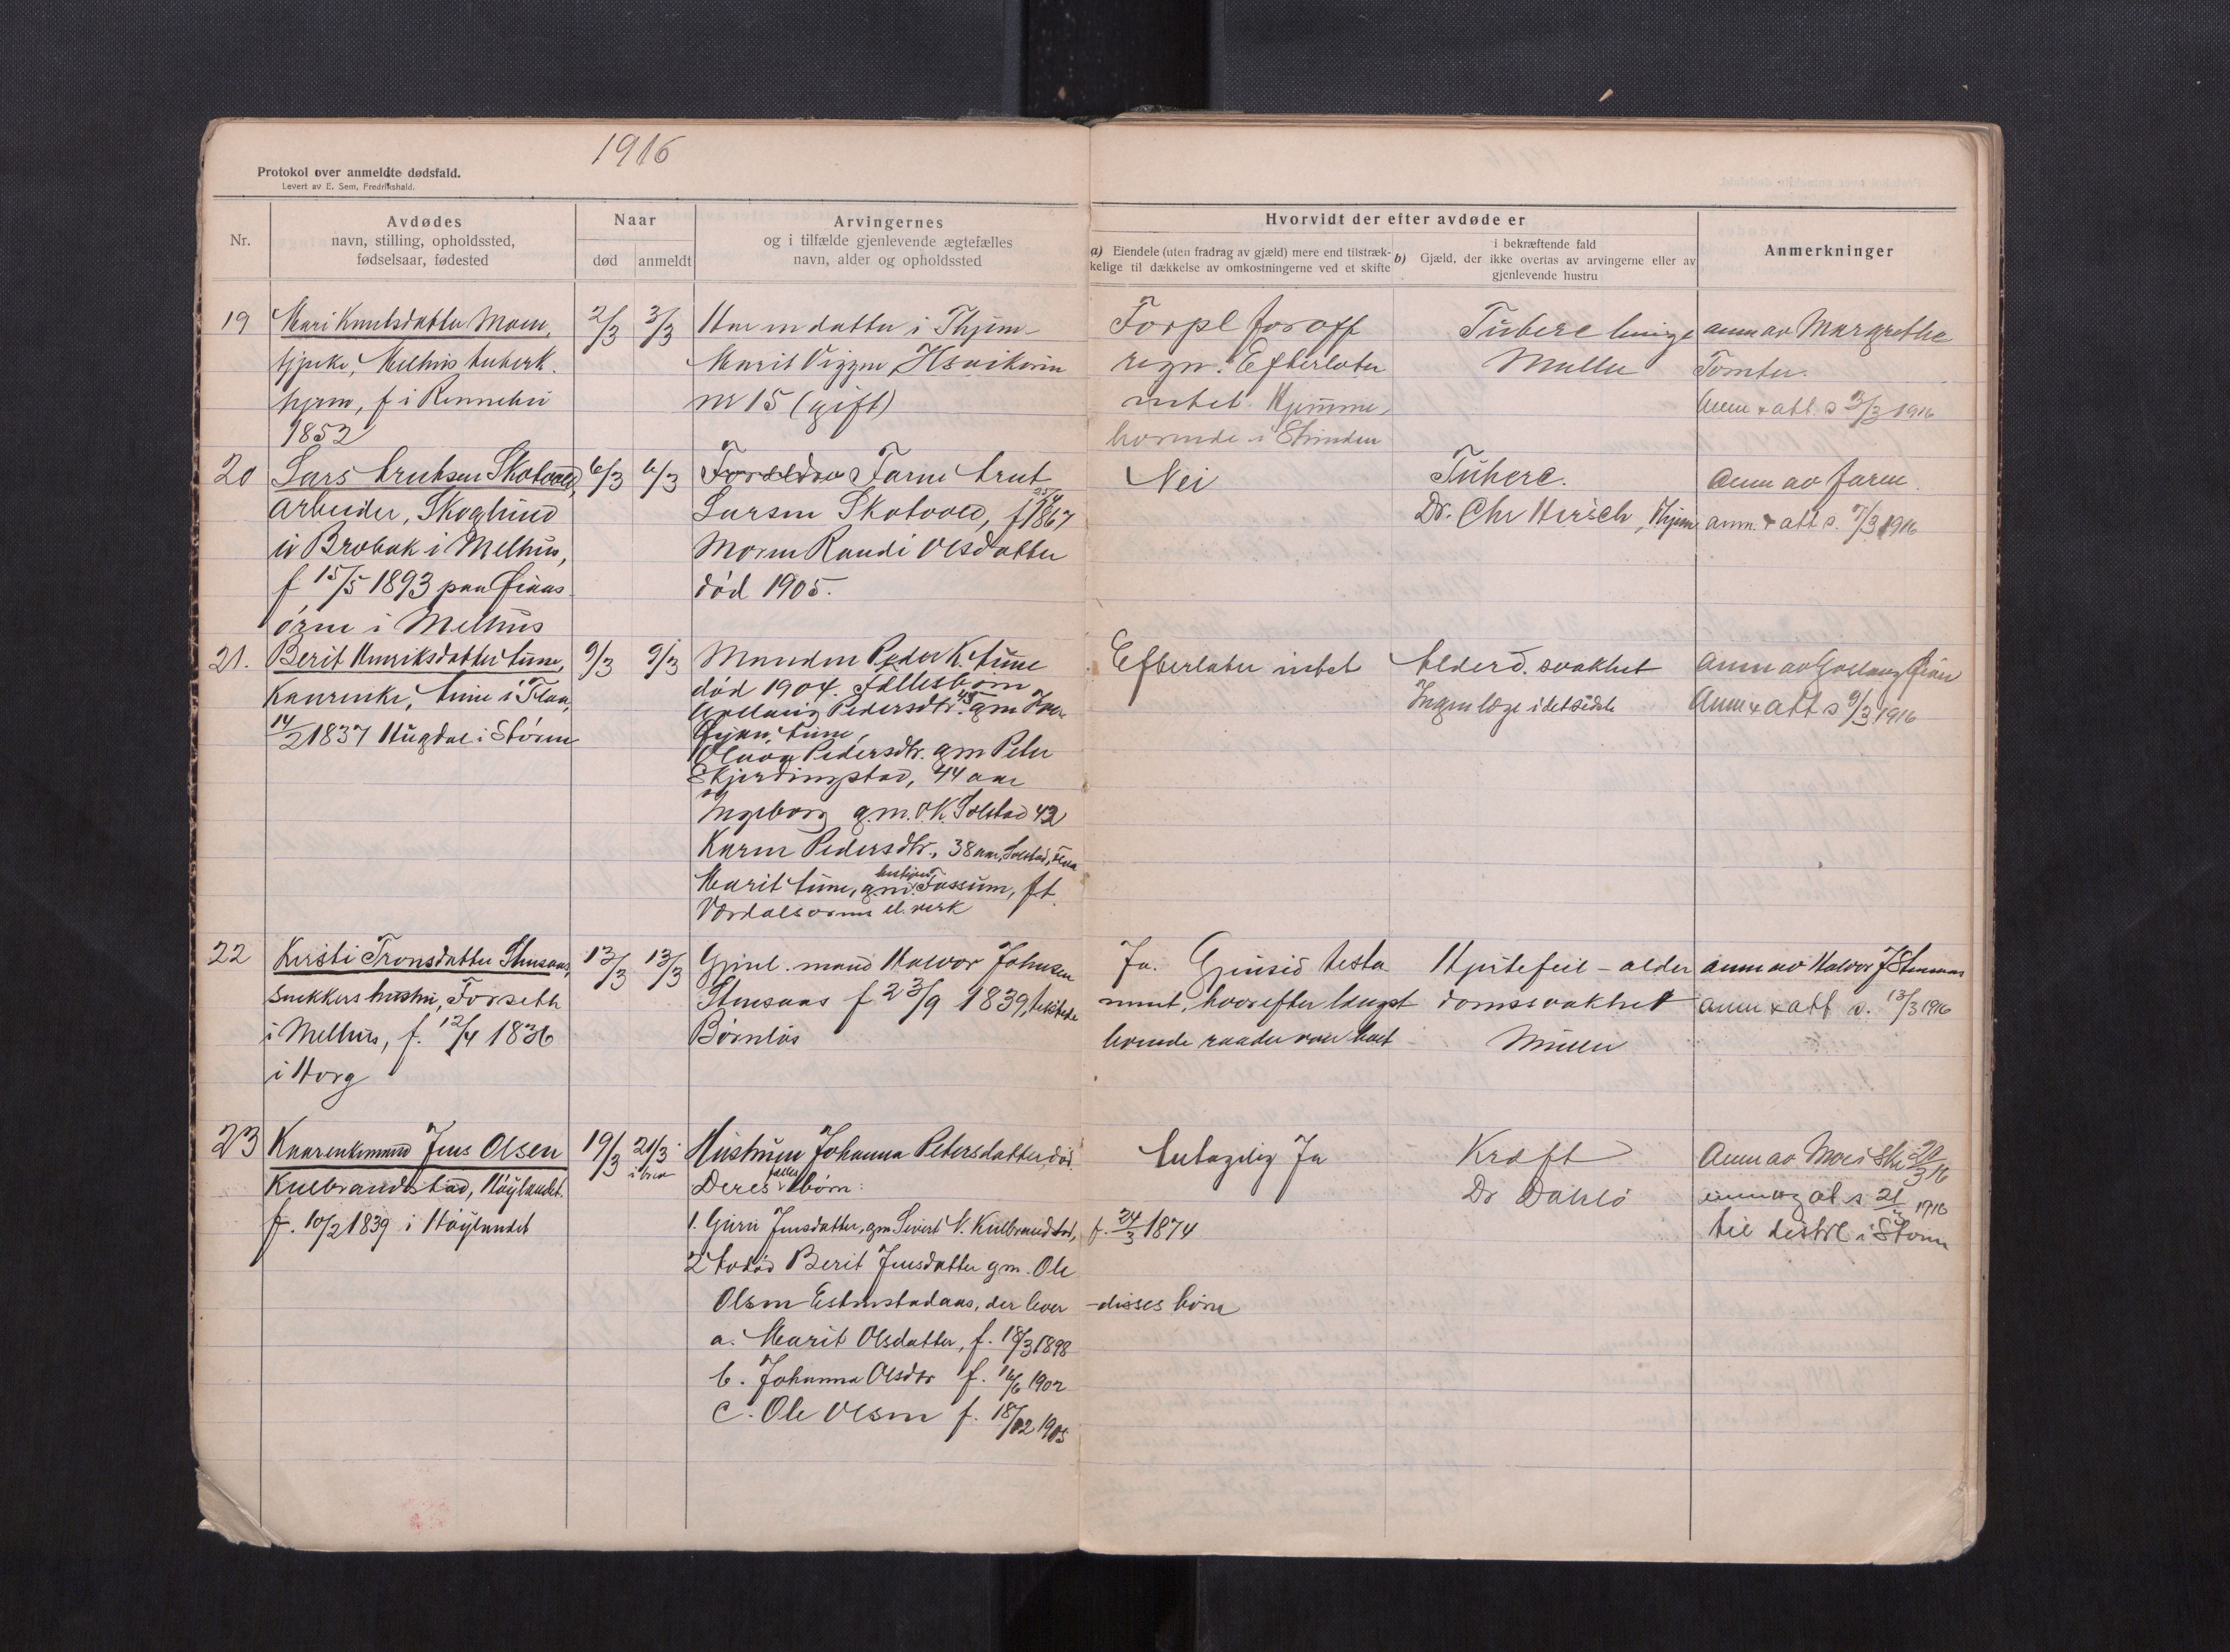 1916
Protokol over anmeldte dødsfald.
Levert av E. Sem, Fredrikshald.
Nr.
Avdødes
navn, stilling, opholdssted,
fødselsaar, fødested
Naar
død
anmeldt
Arvingernes
og i tilfælde gjenlevende ægtefælles
navn, alder og opholdssted
Hvorvidt der efter avdøde er
a) Eiendele (uten fradrag av gjæld) mere end tilstræk-
kelige til dækkelse av omkostningerne ved et skifte
i bekræftende fald
b) Gjæld, der ikke overtas av arvingerne eller av
gjenlevende hustru
Anmerkninger
19
Mari Knutsdatter Moen,
Melhus tuberk.
hjem, f i Rennebu
1852
2/3
3/3
Har en datter i Thjem
Marit Viggen
nr 15 (gift)
Forpl for off
regn. Efterlater
intet. Hjemme-
hørende i Strinden
Tuberc lunge
Müller
anm av Margrethe
Tomter.
Anm & att s 3/3 1916
20
Lars Skotvold,
arbeider, Skoglund
u Brobak i Melhus,
f 15/5 1893 paa Øiaas
ørne i Melhus
6/3
6/3
Forældre Faren
Larsen Skotvold, f 1867
Moren Randi Olsdatter
død 1905.
Nei
Tuberc.
Dr. Chr Hirsch, Thjem
Anm av faren
anm. & att s. 7/3 1916
21.
Berit Henriksdatter
Kaarenke, i Flaa,
14/2 1837 Hugdal i Støren
9/3
9/3
Manden Peder K.
død 1904. Fællesbørn
Pedersdtr. 45 gm
Olava Pedersdtr. gm Peter
Skjerdingstad, 44 aar
Ingeborg g.m. O.K. Solstad 42
Karen Pedersdtr., 38 aar, Solstad, Flaa
Marit gm. Fossum, ft.
Værdalsøren el. verk
Efterlater intet
Alderd. svakhet
Ingen læge i det sidste
Anm av
Anm & att s 9/3 1916
22
Kirsti Tronsdatter Stensaas,
Snekkers hustru, Forseth
i Melhus, f. 12/4 1836
i Horg
13/3
13/3
Gjenl. mand Halvor Johnsen
Stensaas f 23/9 1839,
Barnløs
Ja. Gjensid testa
ment, hvorefter længst
levende raader over boet
Hjertefeil - alder
domssvakhet
Müller
anm av Halvor J Stensaas
anm & att s. 13/3 1916
23
Kaarenkemand Jens Olsen
Kulbrandstad, Høylandet.
f. 10/2 1839 i Høylandet
19/3
21/3
i brev
Hustruen Johanna Petersdatter død.
Deres fælles børn:
1. Guru Jensdatter, gm Sivert N. Kulbrandstad, f. 24/3 1874
2 avdød Berit Jensdatter gm. Ole
Olsen Estenstadaas, der lever - disses børn
a. Marit Olsdatter, f. 18/3 1898
b. Johanna Olsdtr f. 16/6 1902
c. Ole Olsen f. 18/12 1905
Antagelig Ja
Kræft
Dr Dahlö
Anm av 20/3 16
21/3 1916
til distrl i Støren